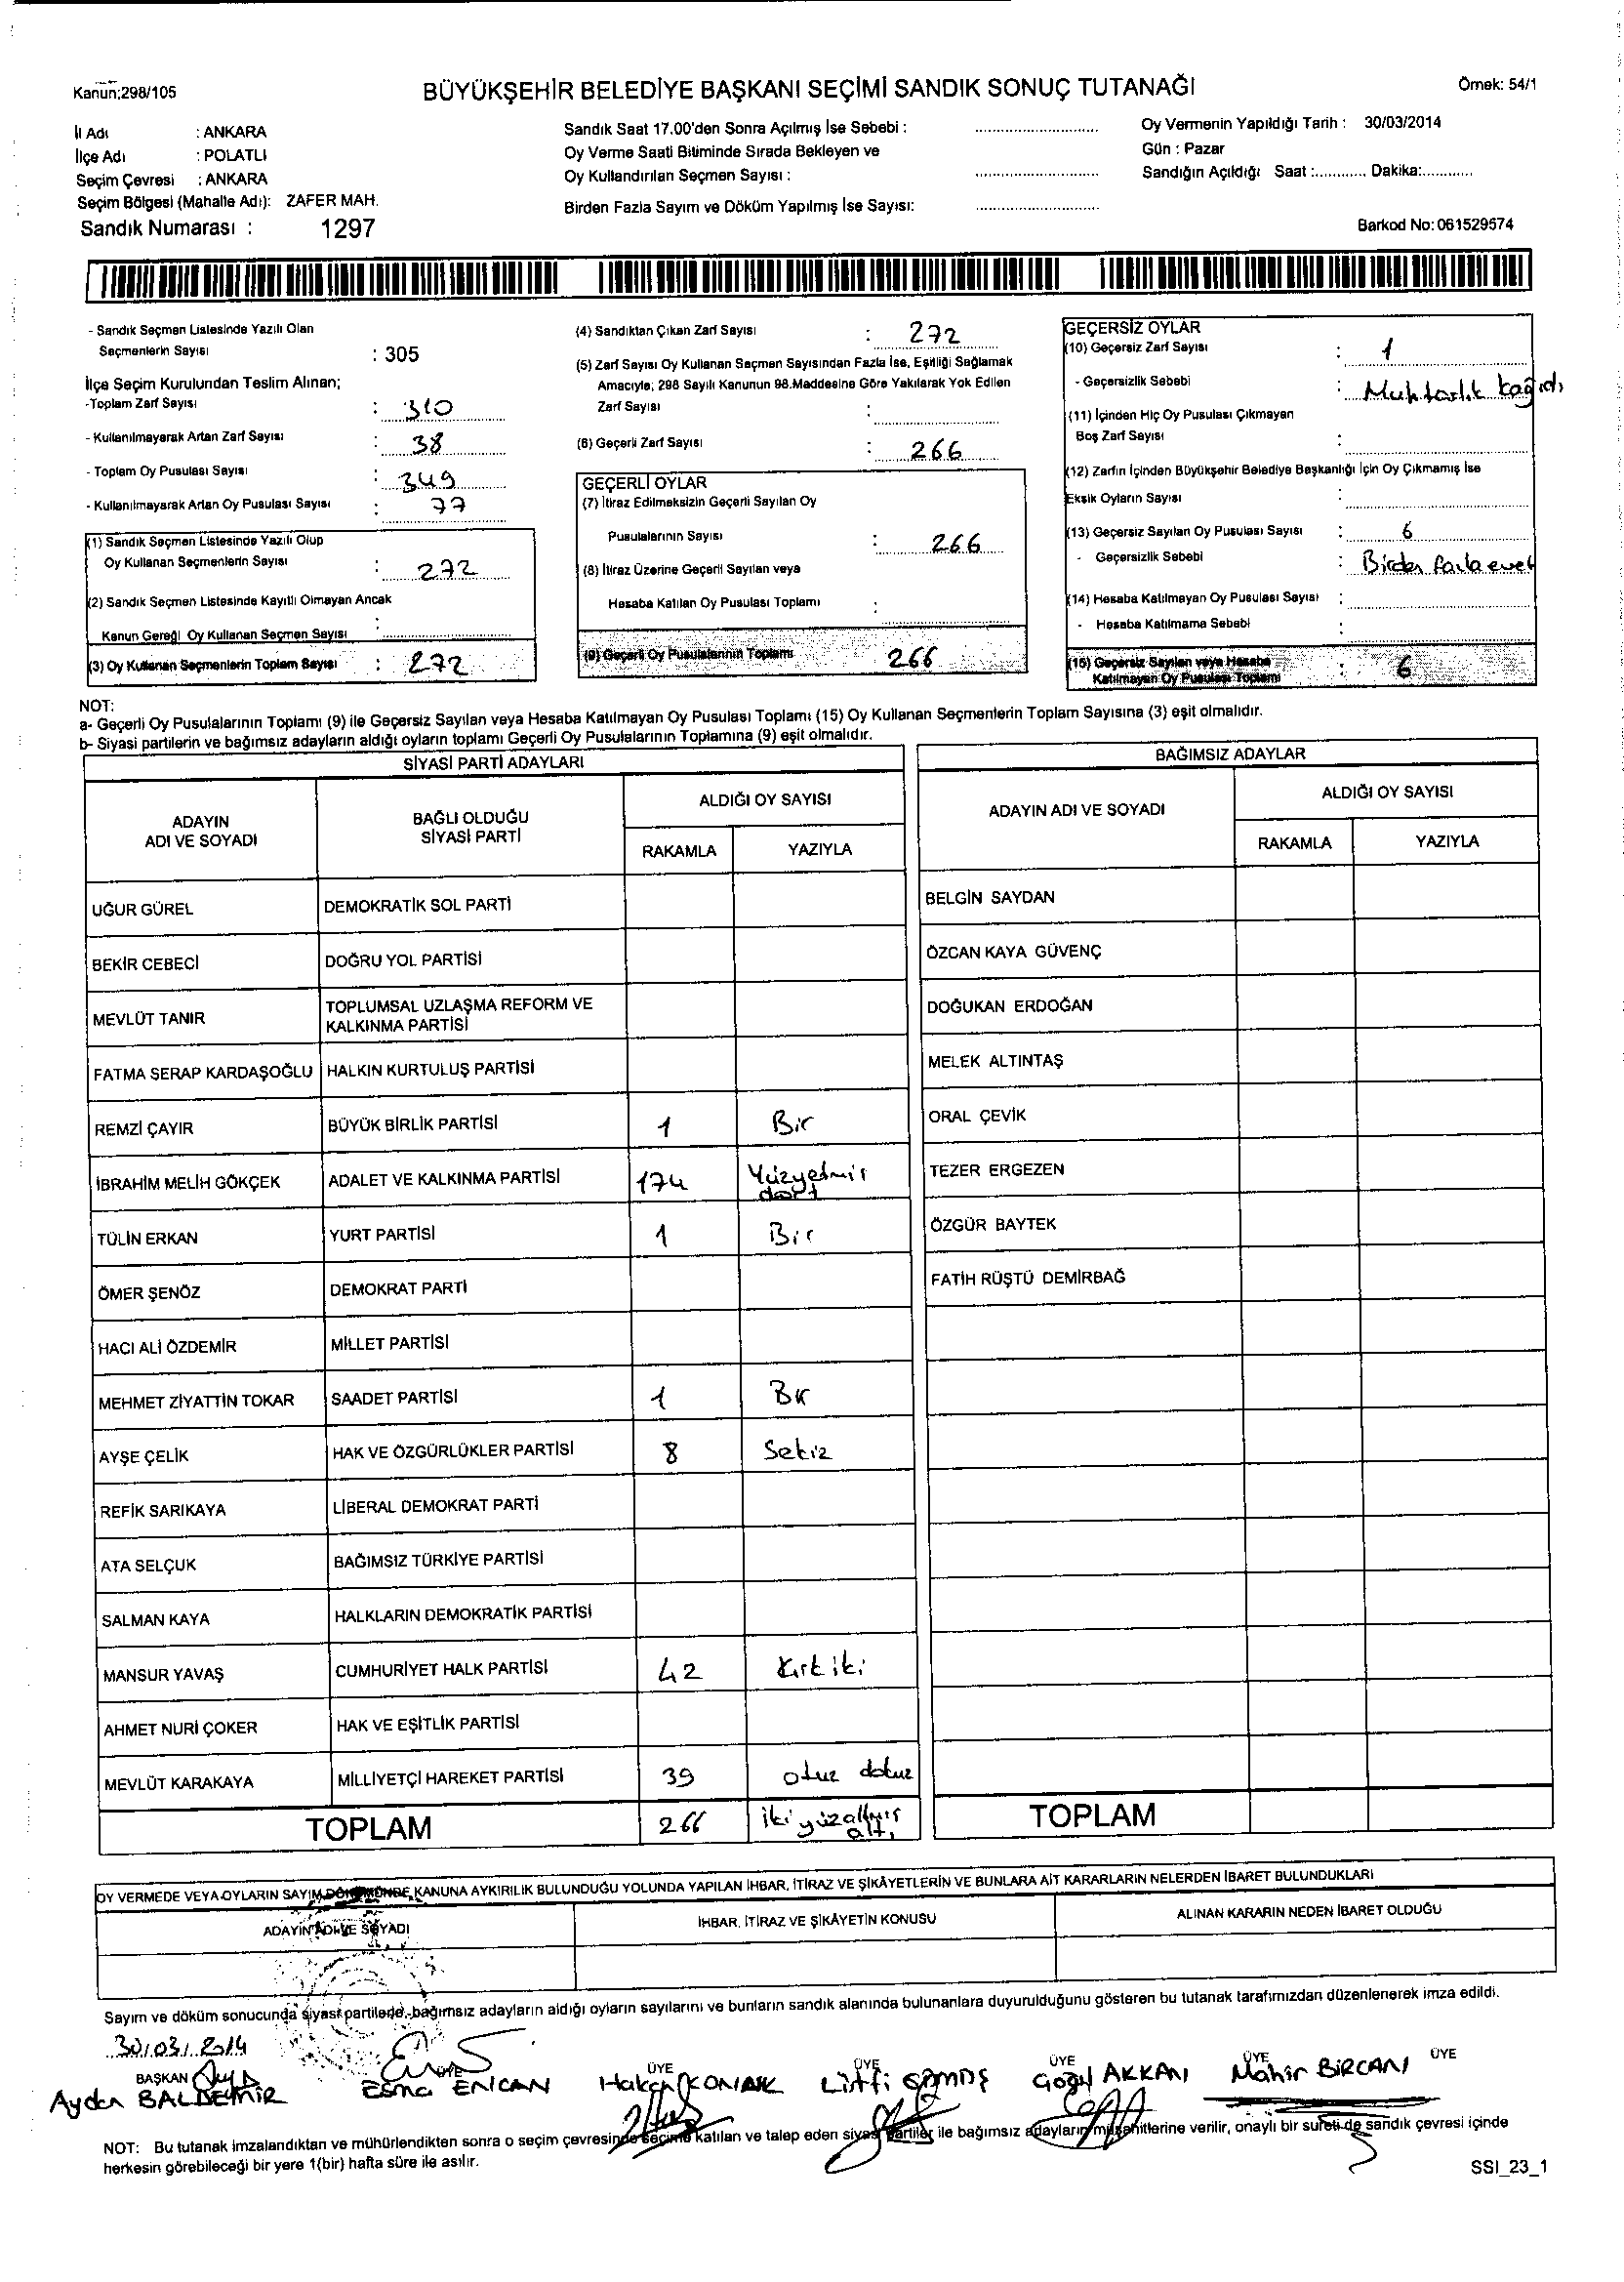 Kanun;298/105
BÜYÜKŞEHİR BELEDİYE BAŞKANI SEÇİMİ SANDIK SONUÇ TUTANAĞI
Örnek: 54/1
İl Adı : ANKARA
İlçe Adı : POLATLI
Seçim Çevresi : ANKARA
Seçim Bölgesi (Mahalle Adı): ZAFER MAH.
Sandık Numarası : 1297
Sandık Saat 17.00'den Sonra Açılmış İse Sebebi :
Oy Verme Saati Bitiminde Sırada Bekleyen ve
Oy Kullandırılan Seçmen Sayısı :
Birden Fazla Sayım ve Döküm Yapılmış İse Sayısı:
Oy Vermenin Yapıldığı Tarih : 30/03/2014
Gün : Pazar
Sandığın Açıldığı Saat :............ Dakika:............
Barkod No:061529574
- Sandık Seçmen Listesinde Yazılı Olan
Seçmenlerin Sayısı : 305
İlçe Seçim Kurulundan Teslim Alınan;
-Toplam Zarf Sayısı : 310
- Kullanılmayarak Artan Zarf Sayısı : 38
- Toplam Oy Pusulası Sayısı : 349
- Kullanılmayarak Artan Oy Pusulası Sayısı : 77
(1) Sandık Seçmen Listesinde Yazılı Olup
Oy Kullanan Seçmenlerin Sayısı : 272
(2) Sandık Seçmen Listesinde Kayıtlı Olmayan Ancak
Kanun Gereği Oy Kullanan Seçmen Sayısı :
(3) Oy Kullanan Seçmenlerin Toplam Sayısı : 272
(4) Sandıktan Çıkan Zarf Sayısı : 272
(5) Zarf Sayısı Oy Kullanan Seçmen Sayısından Fazla İse, Eşitliği Sağlamak
Amacıyla; 298 Sayılı Kanunun 98.Maddesine Göre Yakılarak Yok Edilen
Zarf Sayısı :
(6) Geçerli Zarf Sayısı : 266
GEÇERLİ OYLAR
(7) İtiraz Edilmeksizin Geçerli Sayılan Oy
Pusulalarının Sayısı : 266
(8) İtiraz Üzerine Geçerli Sayılan veya
Hesaba Katılan Oy Pusulası Toplamı :
(9) Geçerli Oy Pusulalarının Toplamı 266
GEÇERSİZ OYLAR
(10) Geçersiz Zarf Sayısı : 1
- Geçersizlik Sebebi : Muhtarlık kağıdı
(11) İçinden Hiç Oy Pusulası Çıkmayan
Boş Zarf Sayısı :
(12) Zarfın İçinden Büyükşehir Belediye Başkanlığı İçin Oy Çıkmamış İse
Eksik Oyların Sayısı :
(13) Geçersiz Sayılan Oy Pusulası Sayısı : 6
- Geçersizlik Sebebi : Birden fazla evet
(14) Hesaba Katılmayan Oy Pusulası Sayısı :
- Hesaba Katılmama Sebebi :
(15) Geçersiz Sayılan veya Hesaba
Katılmayan Oy Pusulası Toplamı : 6
NOT:
a- Geçerli Oy Pusulalarının Toplamı (9) ile Geçersiz Sayılan veya Hesaba Katılmayan Oy Pusulası Toplamı (15) Oy Kullanan Seçmenlerin Toplam Sayısına (3) eşit olmalıdır.
b- Siyasi partilerin ve bağımsız adayların aldığı oyların toplamı Geçerli Oy Pusulalarının Toplamına (9) eşit olmalıdır.
SİYASİ PARTİ ADAYLARI
ADAYIN ADI VE SOYADI
BAĞLI OLDUĞU SİYASİ PARTİ
ALDIĞI OY SAYISI
RAKAMLA YAZIYLA
UĞUR GÜREL DEMOKRATİK SOL PARTİ
BEKİR CEBECİ DOĞRU YOL PARTİSİ
MEVLÜT TANIR TOPLUMSAL UZLAŞMA REFORM VE
KALKINMA PARTİSİ
FATMA SERAP KARDAŞOĞLU HALKIN KURTULUŞ PARTİSİ
REMZİ ÇAYIR BÜYÜK BİRLİK PARTİSİ 1 Bir
İBRAHİM MELİH GÖKÇEK ADALET VE KALKINMA PARTİSİ 174 Yüzyetmiş
dört
TÜLİN ERKAN YURT PARTİSİ 1 Bir
ÖMER ŞENÖZ DEMOKRAT PARTİ
HACI ALİ ÖZDEMİR MİLLET PARTİSİ
MEHMET ZİYATTİN TOKAR SAADET PARTİSİ 1 Bir
AYŞE ÇELİK HAK VE ÖZGÜRLÜKLER PARTİSİ 8 Sekiz
REFİK SARIKAYA LİBERAL DEMOKRAT PARTİ
ATA SELÇUK BAĞIMSIZ TÜRKİYE PARTİSİ
SALMAN KAYA HALKLARIN DEMOKRATİK PARTİSİ
MANSUR YAVAŞ CUMHURİYET HALK PARTİSİ 42 Kırk iki
AHMET NURİ ÇOKER HAK VE EŞİTLİK PARTİSİ
MEVLÜT KARAKAYA MİLLİYETÇİ HAREKET PARTİSİ 39 otuz dokuz
TOPLAM 266 iki yüzaltmış
altı
BAĞIMSIZ ADAYLAR
ADAYIN ADI VE SOYADI
ALDIĞI OY SAYISI
RAKAMLA YAZIYLA
BELGİN SAYDAN
ÖZCAN KAYA GÜVENÇ
DOĞUKAN ERDOĞAN
MELEK ALTINTAŞ
ORAL ÇEVİK
TEZER ERGEZEN
ÖZGÜR BAYTEK
FATİH RÜŞTÜ DEMİRBAĞ
TOPLAM
OY VERMEDE VEYA OYLARIN SAYIM DÖKÜMÜNDE KANUNA AYKIRILIK BULUNDUĞU YOLUNDA YAPILAN İHBAR, İTİRAZ VE ŞİKÂYETLERİN VE BUNLARA AİT KARARLARIN NELERDEN İBARET BULUNDUKLARI
ADAYIN ADI VE SOYADI
İHBAR, İTİRAZ VE ŞİKÂYETİN KONUSU
ALINAN KARARIN NEDEN İBARET OLDUĞU
Sayım ve döküm sonucunda siyasi partilerle, bağımsız adayların aldığı oyların sayılarını ve bunların sandık alanında bulunanlara duyurulduğunu gösteren bu tutanak tarafımızdan düzenlenerek imza edildi.
30/03/2014
BAŞKAN ÜYE ÜYE ÜYE ÜYE ÜYE ÜYE
Aydın BALDEMİR Esma ERICAN Hakan KONAK Lütfi GÜMÜŞ AKKAN Mahir BİRCAN
NOT: Bu tutanak imzalandıktan ve mühürlendikten sonra o seçim çevresinde seçime katılan ve talep eden siyasi partiler ile bağımsız adayların müşahitlerine verilir, onaylı bir sureti de sandık çevresi içinde
herkesin görebileceği bir yere 1(bir) hafta süre ile asılır.
SSI_23_1